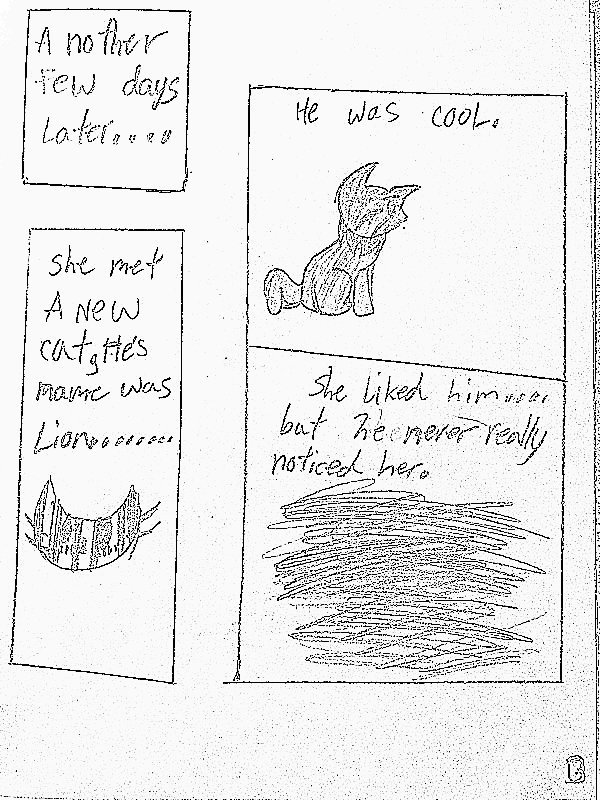 Another
few days
Later....
she met
A New
cat, He's
name was
Lion........
He was cool.
She liked him.....
but he never really
noticed her.